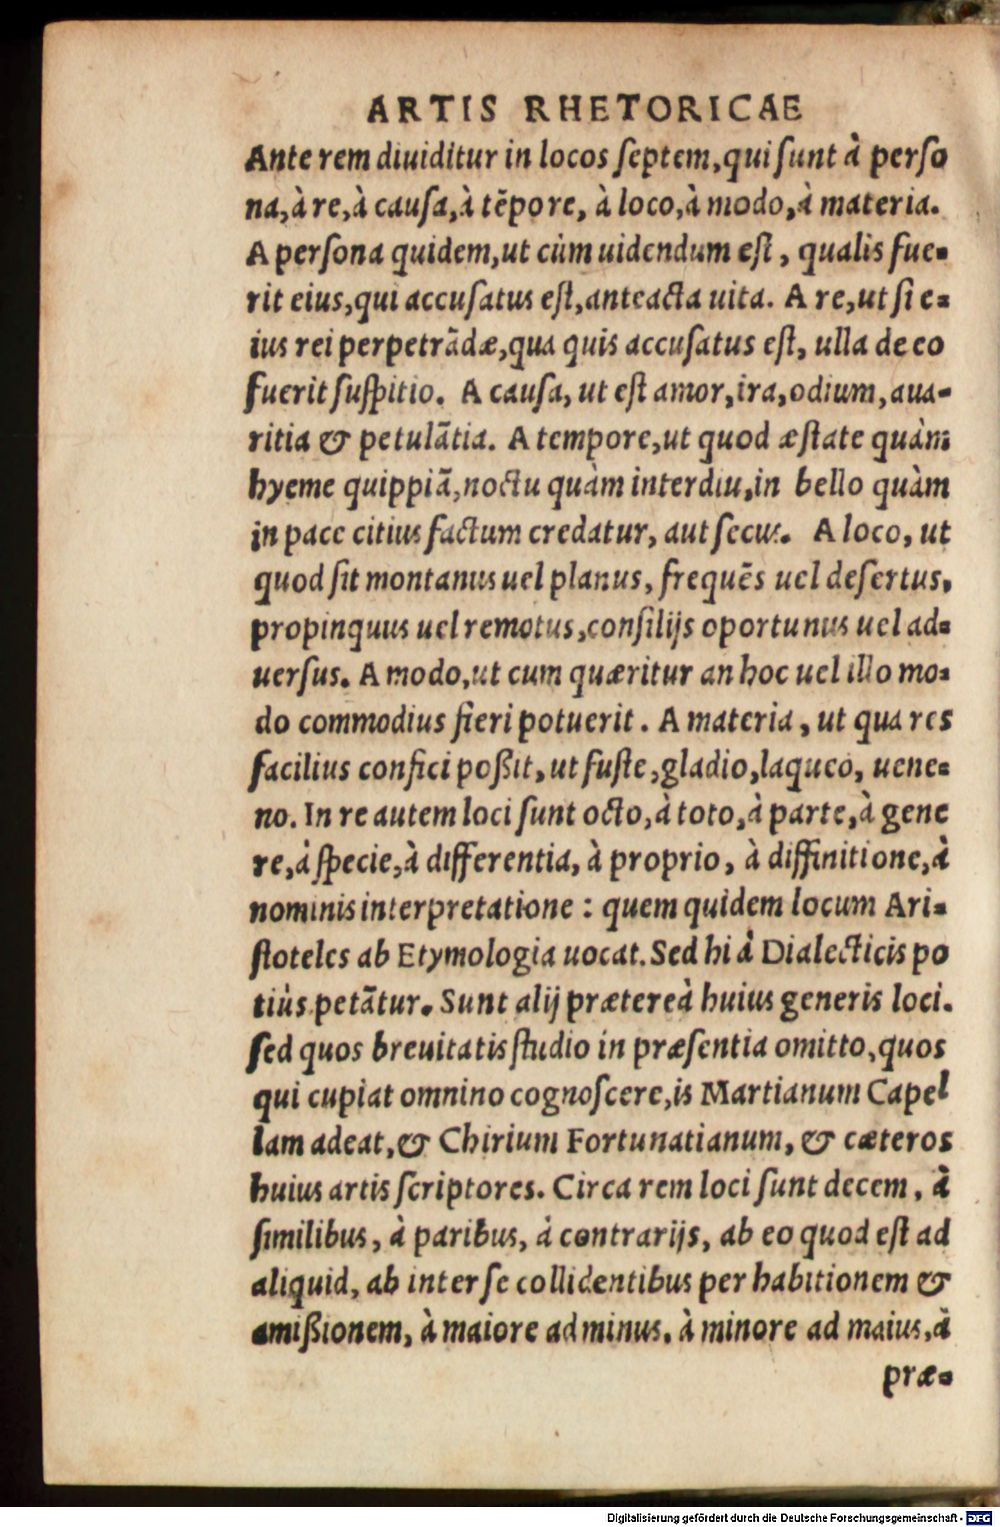 ARTIS RHETORICAE
Ante rem diuiditur in locos ſeptem, qui ſunt à perſo
na, à re, à cauſa, à tēpore, à loco, à modo, à materia.
A perſona quidem, ut cùm uidendum eſt, qualis fue-
rit eius, qui accuſatus eſt, anteacta uita. A re, ut ſi e-
ius rei perpetrādæ, qua quis accuſatus eſt, ulla de eo
fuerit ſuſpitio. A cauſa, ut eſt amor, ira, odium, aua-
ritia & petulātia. A tempore, ut quod æſtate quàm
hyeme quippiā, noctu quàm interdiu, in bello quàm
in pace citius factum credatur, aut ſecus. A loco, ut
quod ſit montanus uel planus, frequēs uel deſertus,
propinquus uel remotus, conſilijs oportunus uel ad-
uerſus. A modo, ut cum quæritur an hoc uel illo mo-
do commodius fieri potuerit. A materia, ut qua res
facilius confici poßit, ut fuſte, gladio, laqueo, uene-
no. In re autem loci ſunt octo, à toto, à parte, à gene
re, à ſpecie, à differentia, à proprio, à diffinitione, à
nominis interpretatione: quem quidem locum Ari-
ſtoteles ab Etymologia uocat. Sed hi à Dialecticis po
tiùs petātur. Sunt alij prætereà huius generis loci.
ſed quos breuitatis ſtudio in præſentia omitto, quos
qui cupiat omnino cognoſcere, is Martianum Capel
lam adeat, & Chirium Fortunatianum, & cæteros
huius artis ſcriptores. Circa rem loci ſunt decem, à
ſimilibus, à paribus, à contrarijs, ab eo quod eſt ad
aliquid, ab inter ſe collidentibus per habitionem &
amißionem, à maiore ad minus, à minore ad maius, à
præ-
Digitalisierung gefördert durch die Deutsche Forschungsgemeinschaft - DFG